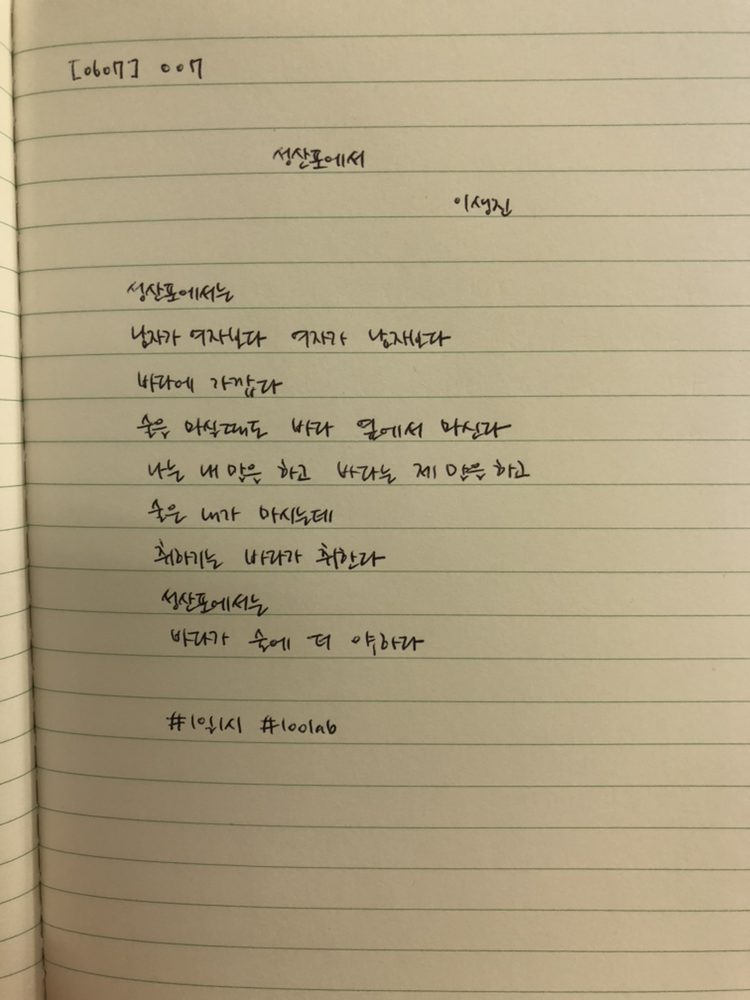 [0607] 007
성산포에서
이생진
성산포에서는
남자가 여자보다 여자가 남자보다
바다에 가깝다
술을 마실때도 바다 옆에서 마신다
나는 내 말을 하고 바다는 제 말을 하고
술은 내가 마시는데
취하기는 바다가 취한다
성산포에서는
바다가 술에 더 약하다
#1일1시 #100lab